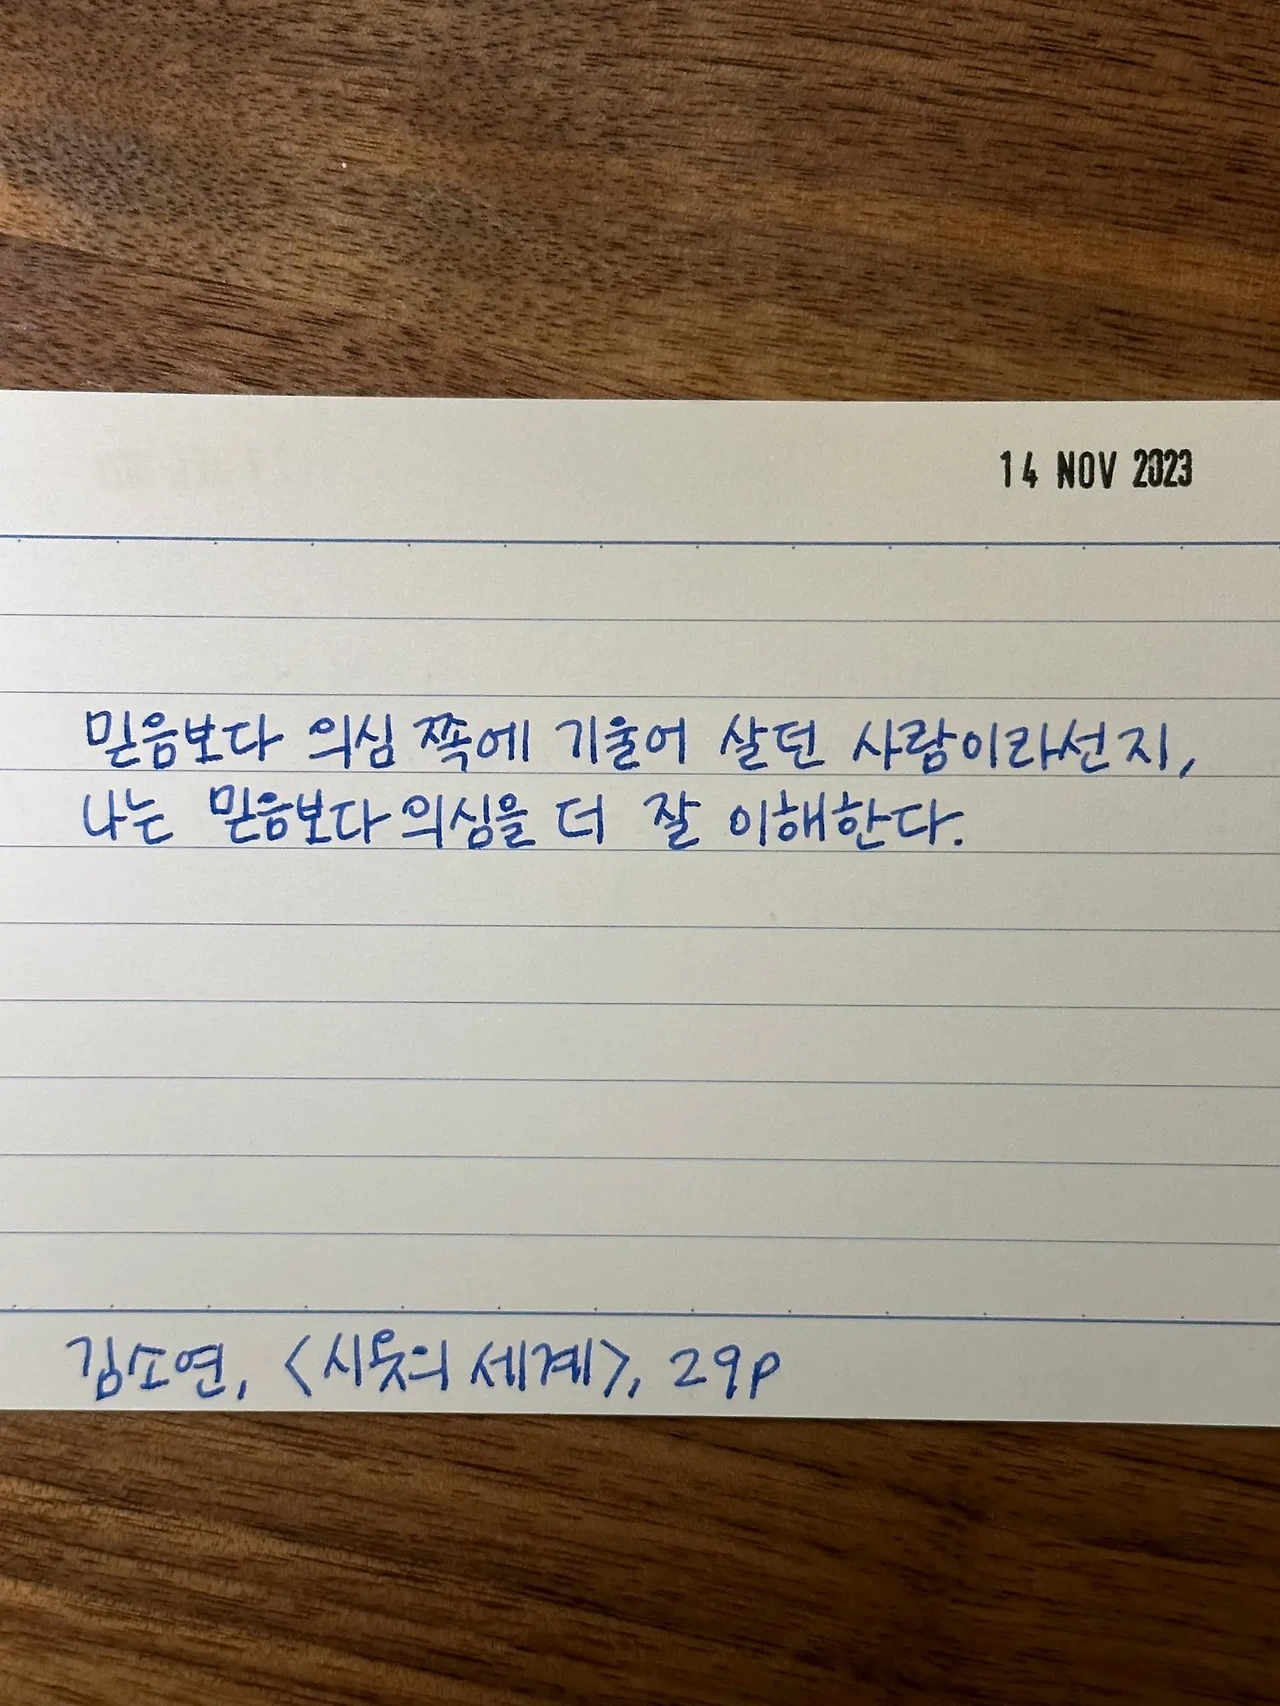 14 NOV 2023
믿음보다 의심 쪽에 기울어 살던 사람이라선지,
나는 믿음보다 의심을 더 잘 이해한다.
김소연, <시옷의 세계>, 29p